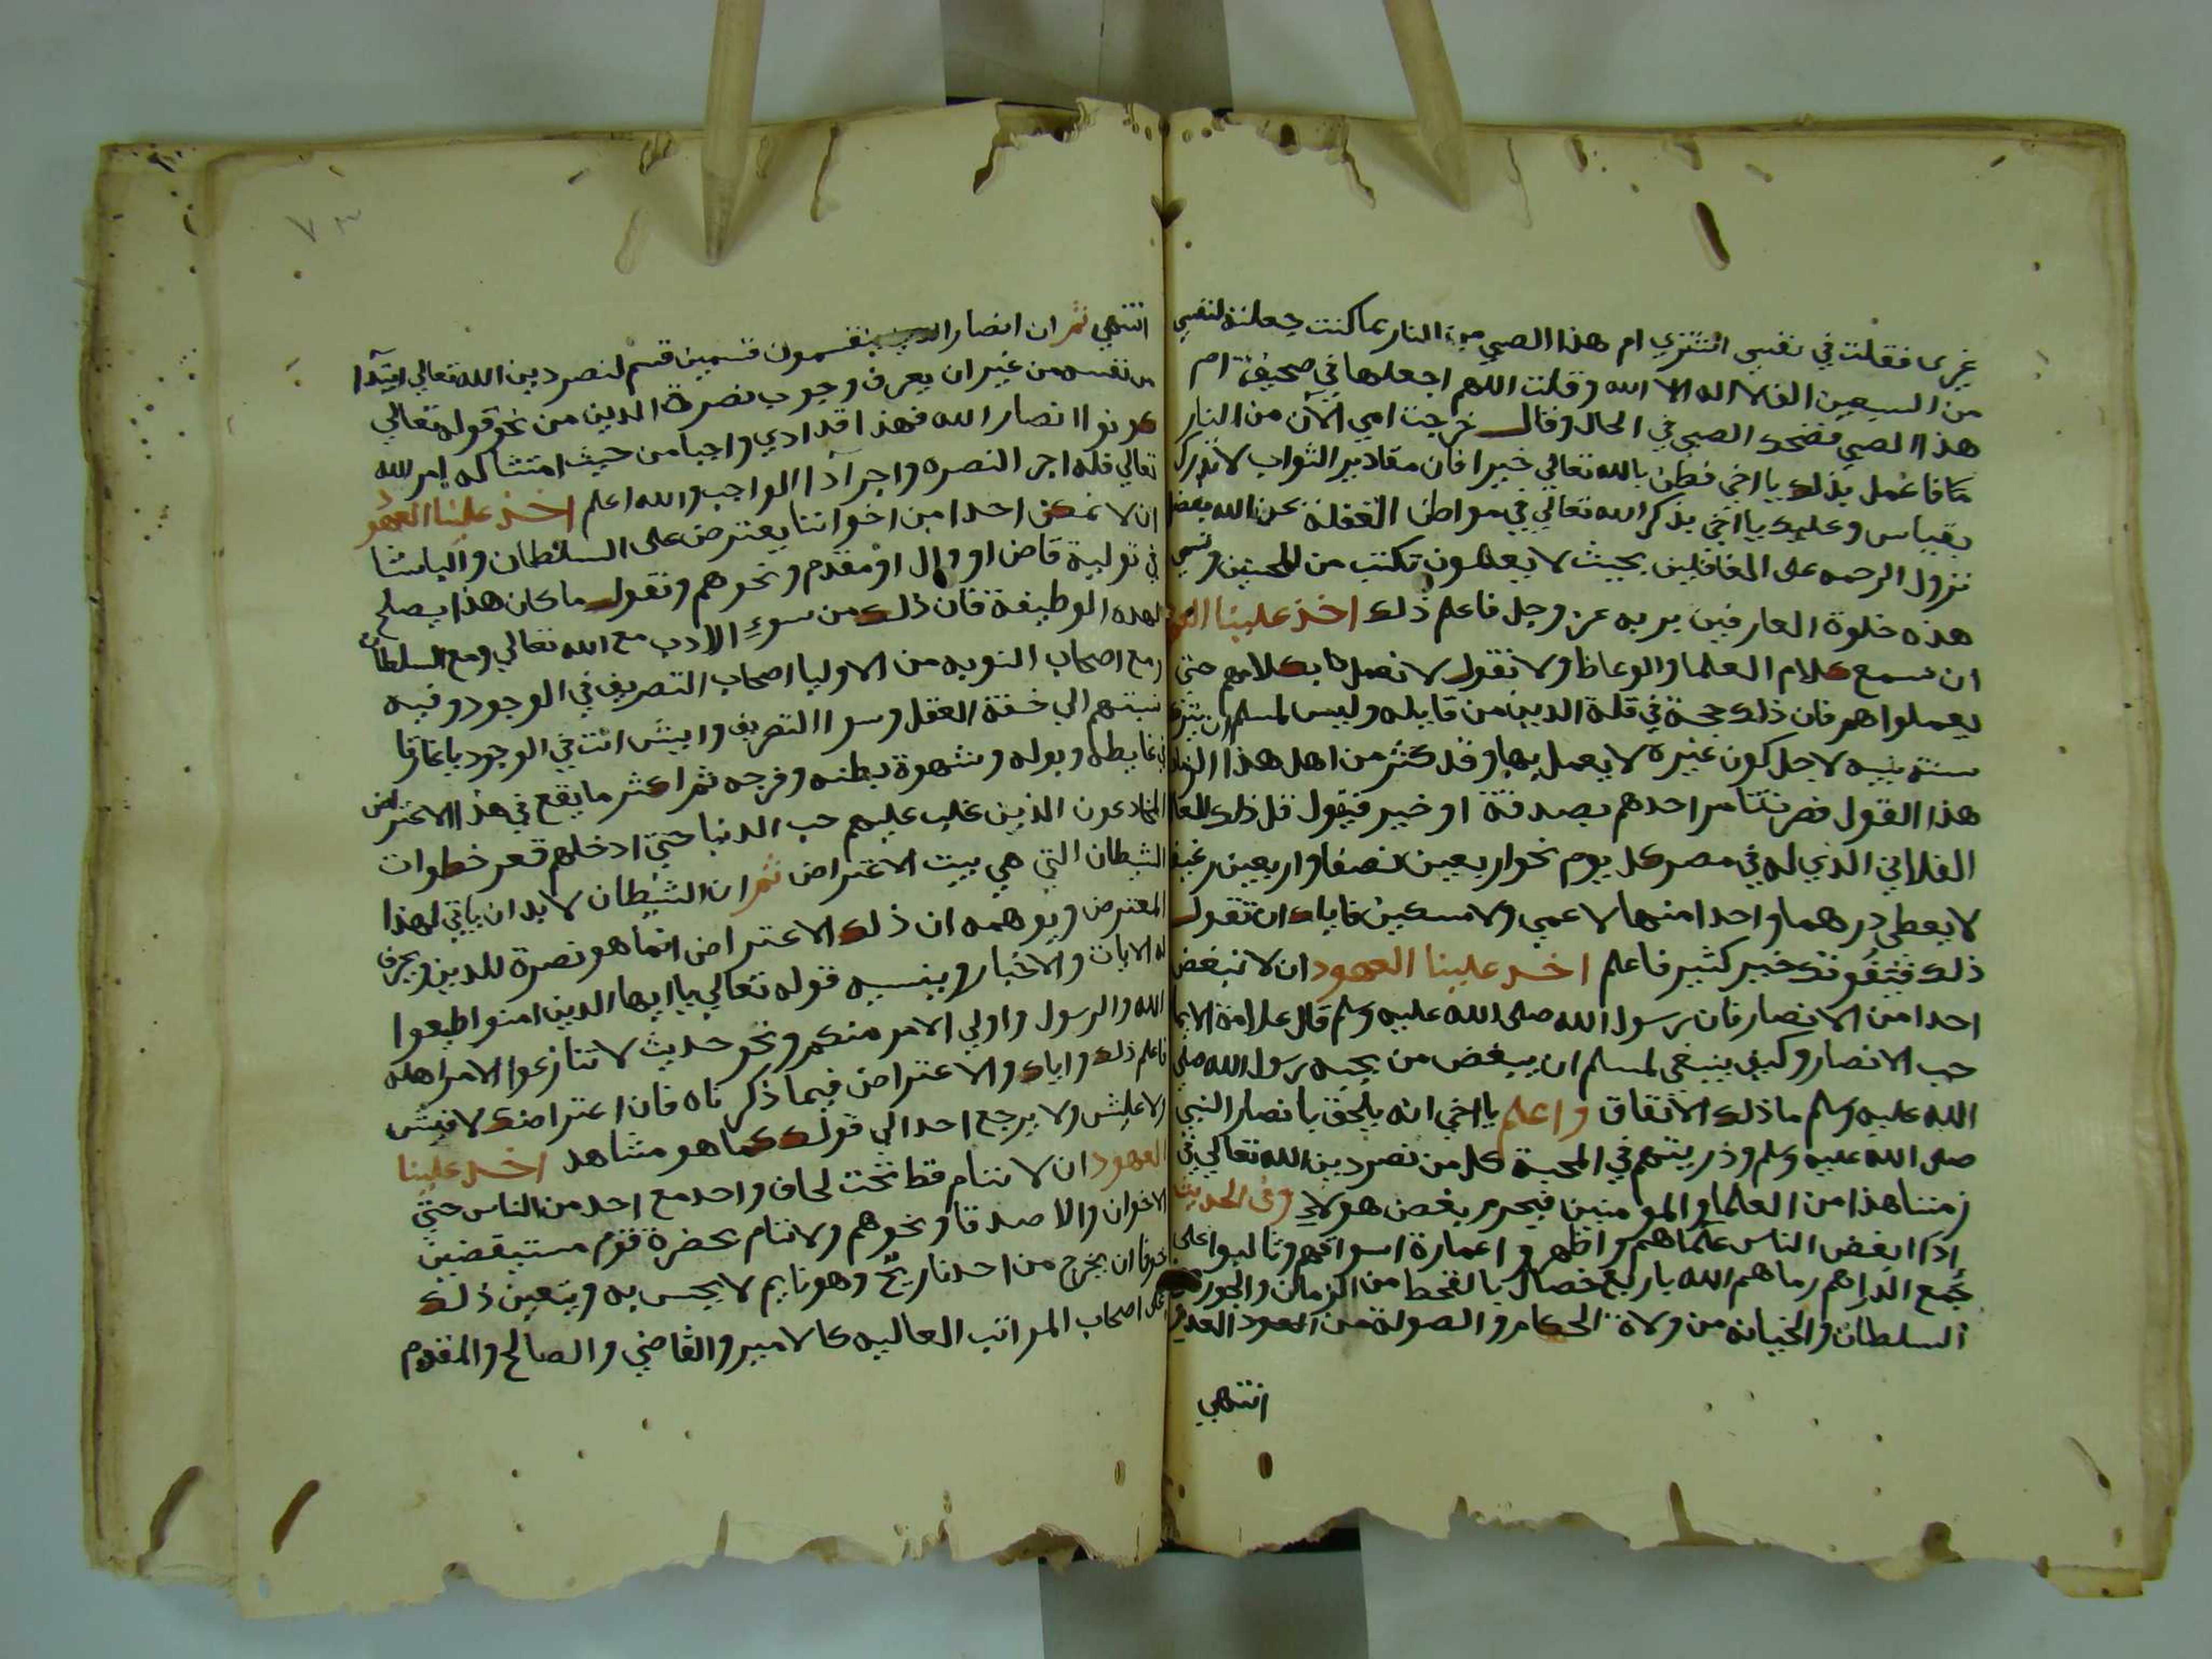 غيرى فقلت في نفسي اشتري ام هذا الصبي من النار بما كنت جعلته لنفسي
من السبعين الف لا اله الا الله وقلت اللهم اجعلها في صحيفة ام
هذا الصبي فضحك الصبي في الحال وقال خرجت امي الآن من النار
فاعمل بذلك يا اخي فظن بالله تعالي خيرا فان مقادير الثواب لا تدرك
بقياس وعليك يا اخي بذكر الله تعالي في مواطن الغفلة
نزول الرحمه على الغافلين بحيث لا يعلمون تكتب من المحسنين وتسمي
هذه خلوة العارفين بربه عز وجل فاعلم ذلك اخذ علينا العهود
ان نسمع كلام العلما والوعاظ ولا نقول لا نعمل بكلامهم حتى
يعملوا هم فان ذلك حجة في قلة الدين من قايله وليس لمسلم ان يترك
سنة نبيه لاجل كون غيره لا يعمل بها وقد كثر من اهل هذا الزمان
هذا القول فصرنا نامر احدهم بصدقة او خير فيقول قل ذلك للعالم
الفلاني الذي له في مصر كل يوم نحو اربعين نصفا واربعين رغيفا
لا يعطي درهما واحدا منها لاعمي ولا مسكين فاياك ان تقول
ذلك فيفوتك خير كثير فاعلم اخذ علينا العهود ان لا نبغض
احدا من الانصار فان رسول الله صلى الله عليه وسلم قال علامة الايمان
حب الانصار وكيف ينبغي لمسلم ان يبغض من يحبه رسول الله صلى
الله عليه وسلم ما ذلك الا نفاق واعلم يا اخي انه يلحق بانصار النبي
صلى الله عليه وسلم وذريتهم في المحبة كل من نصر دين الله تعالي في
زمننا هذا من العلما والمومنين فيحرم بغض هولاء وفي الحديث
اذا ابغض الناس علماهم واظهروا عمارة اسواقهم وتالبوا على
جمع الدراهم رماهم الله باربع خصال بالقحط من الزمان والجور من
السلطان والخيانه من ولاة الحكام والصولة من العدو
انتهي
٧٣
انتهي ثم ان انصار الدين ينقسمون قسمين قسم لنصر دين الله تعالي ابتدا
من نفسه من غير ان يعرف وجوب نصرة الدين من نحو قوله تعالي
كونوا انصار الله فهذا قد ادي واجبا من حيث امتثاله امر الله
تعالي فله اجر النصره واجر آدا الواجب والله اعلم اخذ علينا العهود
ان لا نمكن احدا من اخواننا يعترض على السلطان والباشا
في تولية قاض او وال او مقدم ونحوهم ونقول ما كان هذا يصلح
لهذه الوظيفة فان ذلك من سوء الادب مع الله تعالي ومع السلطان
ومع اصحاب النوبه من الاوليا اصحاب التصريف في الوجود وفيه
نسبتهم الي خفة العقل وسوا التصريف وايش انت في الوجود يا غارقا
في غايطه وبوله وشهوة بطنه وفرجه ثم اكثر ما يقع في هذا الاعتراض
المخادعون الذين غلب عليهم حب الدنيا حتي ادخلهم قعر خطوات
الشيطان التي هي بيت الاعتراض ثم ان الشيطان لا بد ان ياتي لهذا
المعترض ويوهمه ان ذلك الاعتراض انما هو نصرة للدين ويحرف
له الايات والاخبار وينسيه قوله تعالي يا ايها الذين امنوا اطيعوا
الله والرسول واولي الامر منكم ونحو حديث لا تنازعوا الامر اهله
فاعلم ذلك واياك والاعتراض فيما ذكرناه فان اعتراضك لا فيش
ولا عليش ولا يرجع احد الي قولك كما هو مشاهد اخذ علينا
العهود ان لا ننام قط تحت لحاف واحد مع احد من الناس حتي
الاخوان والاصدقا ونحوهم ولا ننام بحضرة قوم مستيقضين
خوفا ان يخرج من احدنا ريح وهو نايم لا يحس به ويتعين ذلك
على اصحاب المراتب العاليه كالامير والقاضي والصالح والمقدم